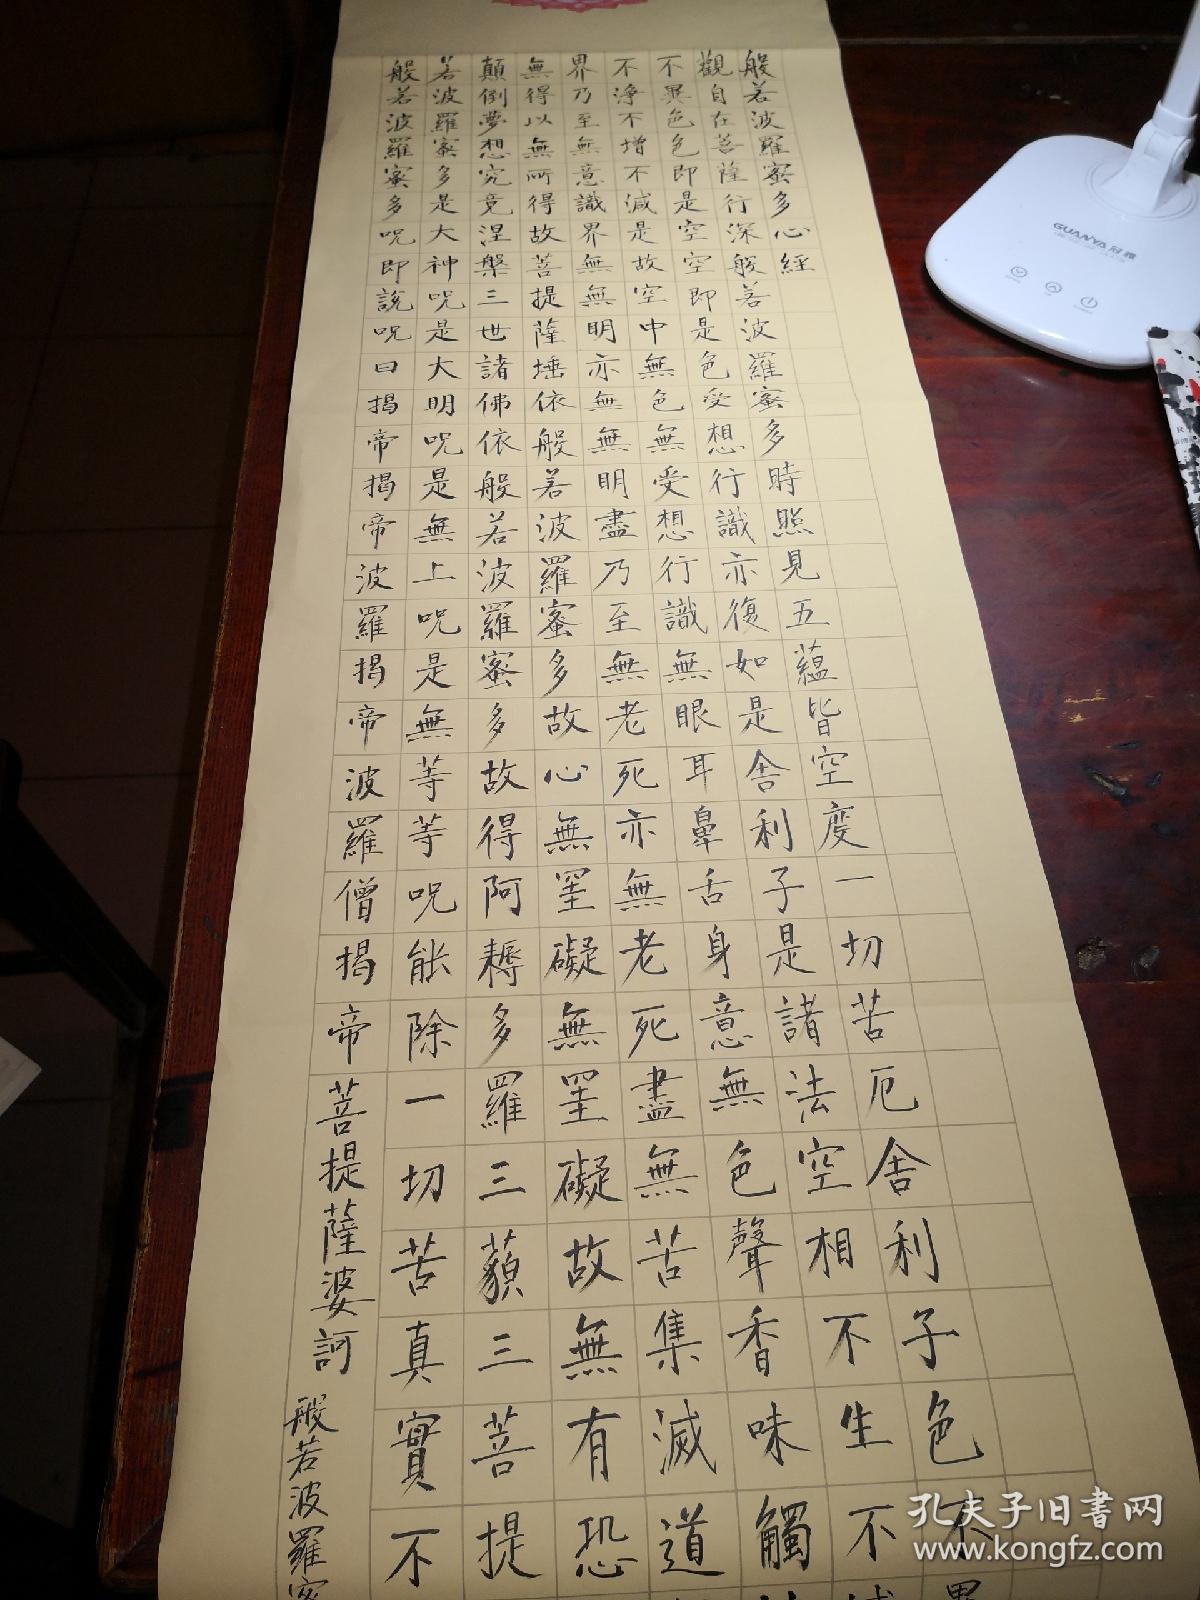 般若波羅蜜多心經
觀自在菩薩行深般若波羅蜜多時照見五蘊皆空度一切苦厄舍利子色不異
不異色色即是空空即是色受想行識亦復如是舍利子是諸法空相不生不
不淨不增不減是故空中無色無受想行識無眼耳鼻舌身意無色聲香味觸
界乃至無意識界無無明亦無無明盡乃至無老死亦無老死盡無苦集滅道
無得以無所得故菩提薩埵依般若波羅蜜多故心無罣礙無罣礙故無有恐
顛倒夢想究竟涅槃三世諸佛依般若波羅蜜多故得阿耨多羅三藐三菩提
若波羅蜜多是大神呪是大明呪是無上呪是無等等呪能除一切苦真實不
般若波羅蜜多呪即說呪曰揭帝揭帝波羅揭帝波羅僧揭帝菩提薩婆訶
般若波羅蜜
GUANYA 冠雅
孔夫子旧书网
www.kongfz.com